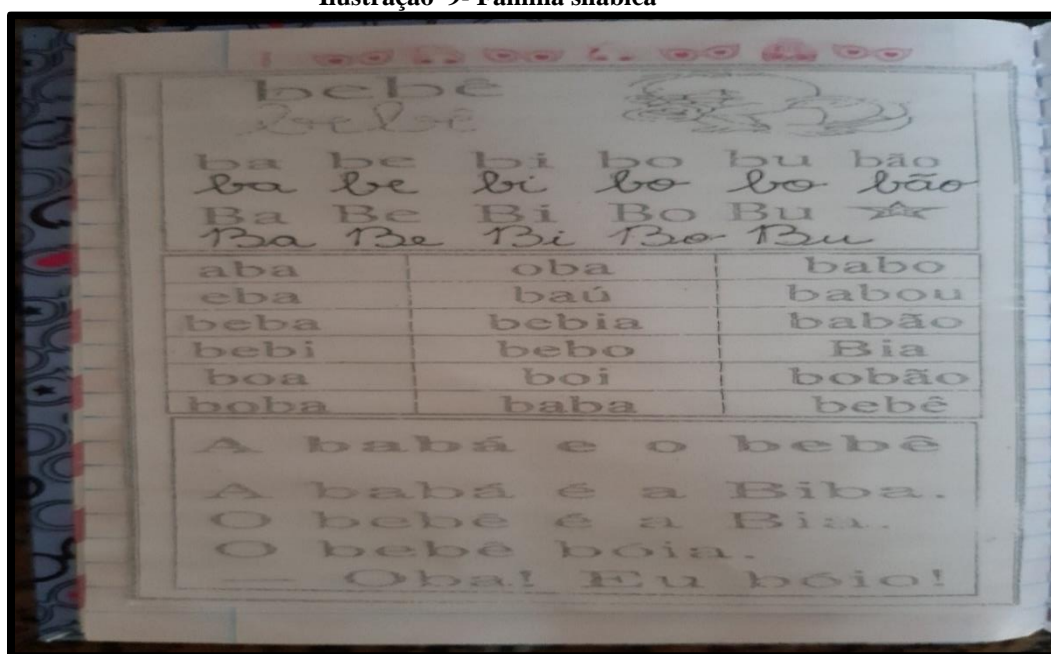 Ilustração 9- Família silábica
bebê
bebê
ba be bi bo bu bão
ba be bi bo bo bão
Ba Be Bi Bo Bu
Ba Be Bi Bo Bu
aba oba babo
eba baú babou
beba bebia babão
bebi bebo Bia
boa boi bobão
boba baba bebê
A babá e o bebê
A babá é a Biba.
O bebê é a Bia.
O bebê bóia.
— Oba! Eu bóio!